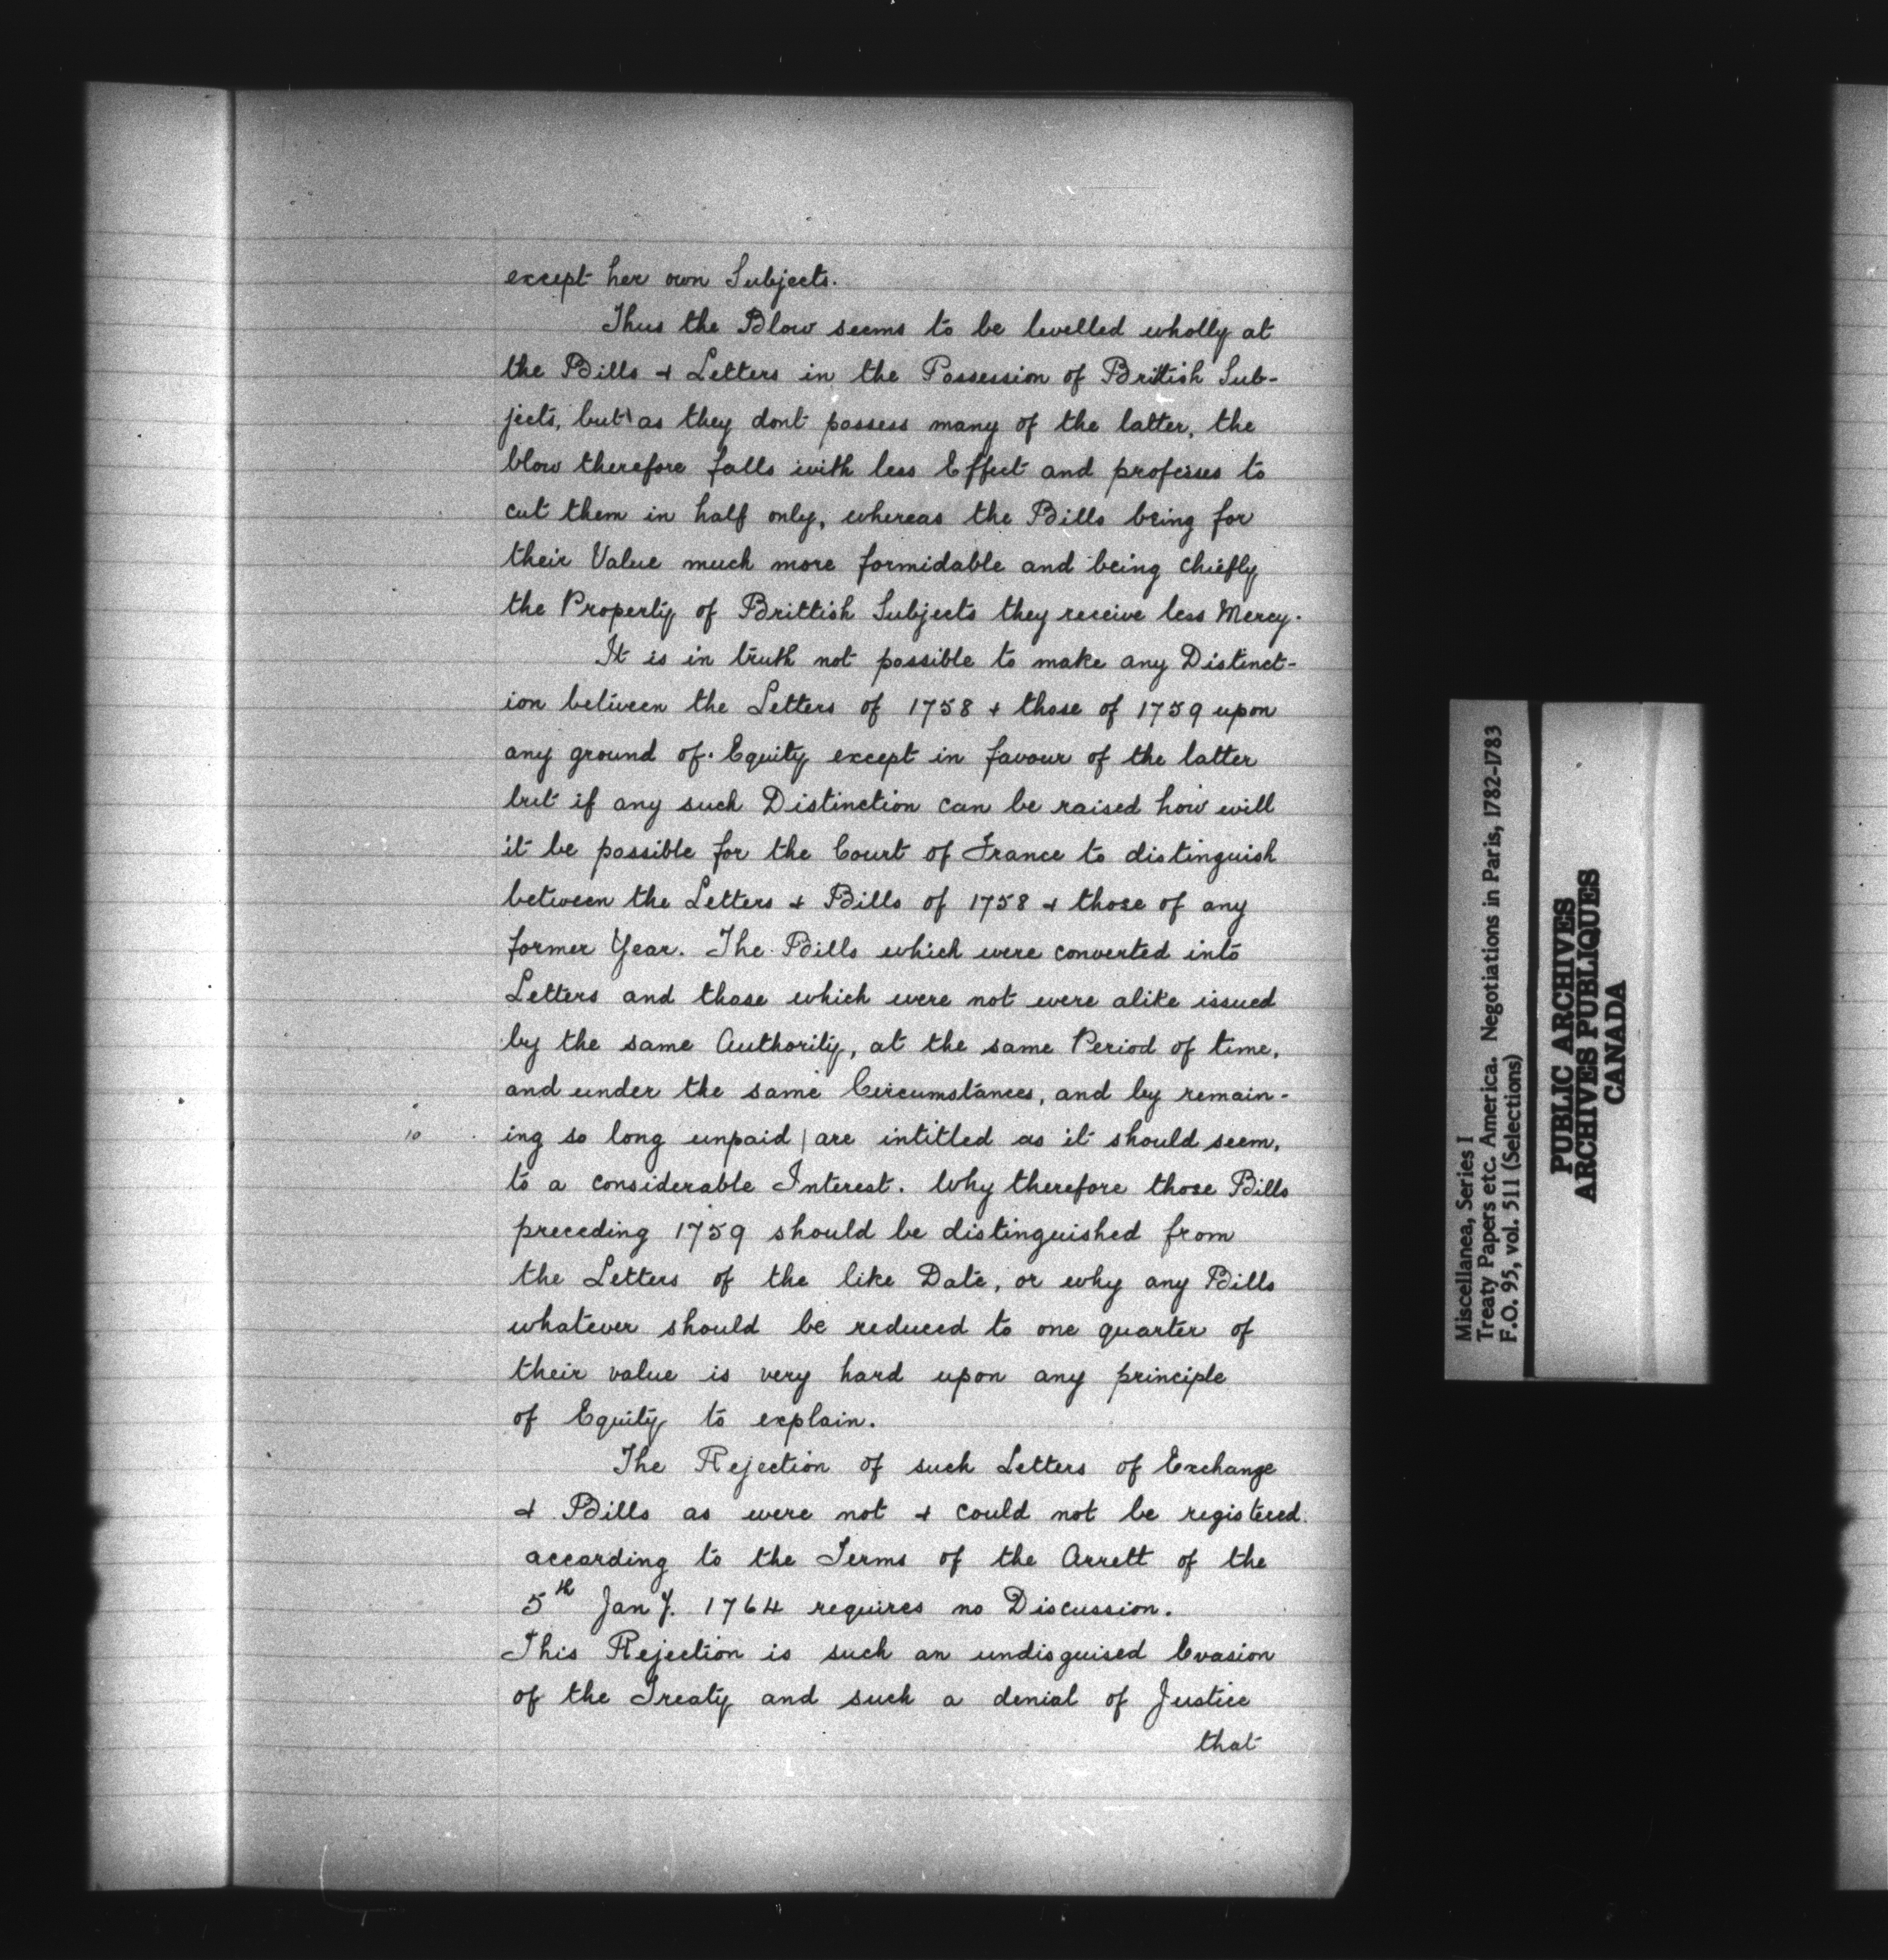 except her own Subjects.
Thus the Blow seems to be levelled wholly at
the Bills & Letters in the Possession of Brittish Sub-
jects, but as they dont possess many of the latter, the
blow therefore falls with less Effect and professes to
cut them in half only, whereas the Bills being for
their Value much more formidable and being chiefly
the Property of Brittish Subjects they receive less Mercy.
It is in truth not possible to make any Distinct-
ion between the Letters of 1758 & those of 1759 upon
any ground of Equity except in favour of the latter
but if any such Distinction can be raised how will
it be possible for the Court of France to distinguish
between the Letters & Bills of 1758 & those of any
former Year. The Bills which were converted into
Letters and those which were not were alike issued
by the same Authority, at the same Period of time,
and under the same Circumstances, and by remain-
10 ing so long unpaid | are intitled as it should seem,
to a considerable Interest. Why therefore those Bills
preceding 1759 should be distinguished from
the Letters of the like Date, or why any Bills
whatever should be reduced to one quarter of
their value is very hard upon any principle
of Equity to explain.
The Rejection of such Letters of Exchange
& Bills as were not & could not be registered
according to the Terms of the Arrett of the
5th Jany. 1764 requires no Discussion.
This Rejection is such an undisguised Evasion
of the Treaty and such a denial of Justice
that
Miscellanea, Series I
Treaty Papers etc. America. Negotiations in Paris, 1782-1783
F.O. 95, vol. 511 (Selections)
PUBLIC ARCHIVES
ARCHIVES PUBLIQUES
CANADA